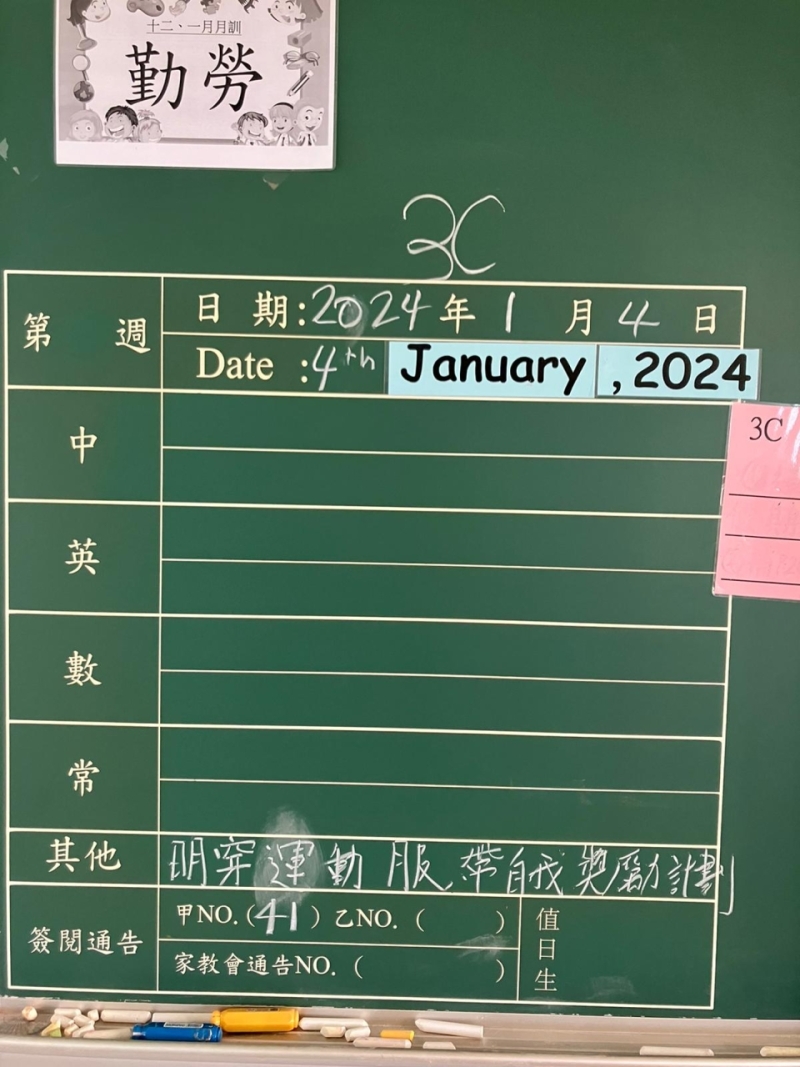 十二、一月月訓
勤勞
3C
第 週
日期:2024年1月4日
Date :4th January ,2024
3C
中
英
數
常
其他 明穿運動服,帶自我獎勵計劃
簽閱通告
甲NO.(41) 乙NO.( )
家教會通告NO.( )
值日生